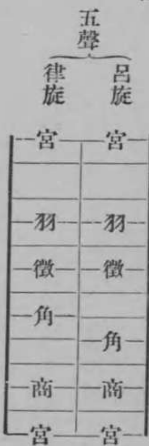 五聲
呂旋
律旋
宮 宮
羽 羽
徵 徵
角
角
商 商
宮 宮